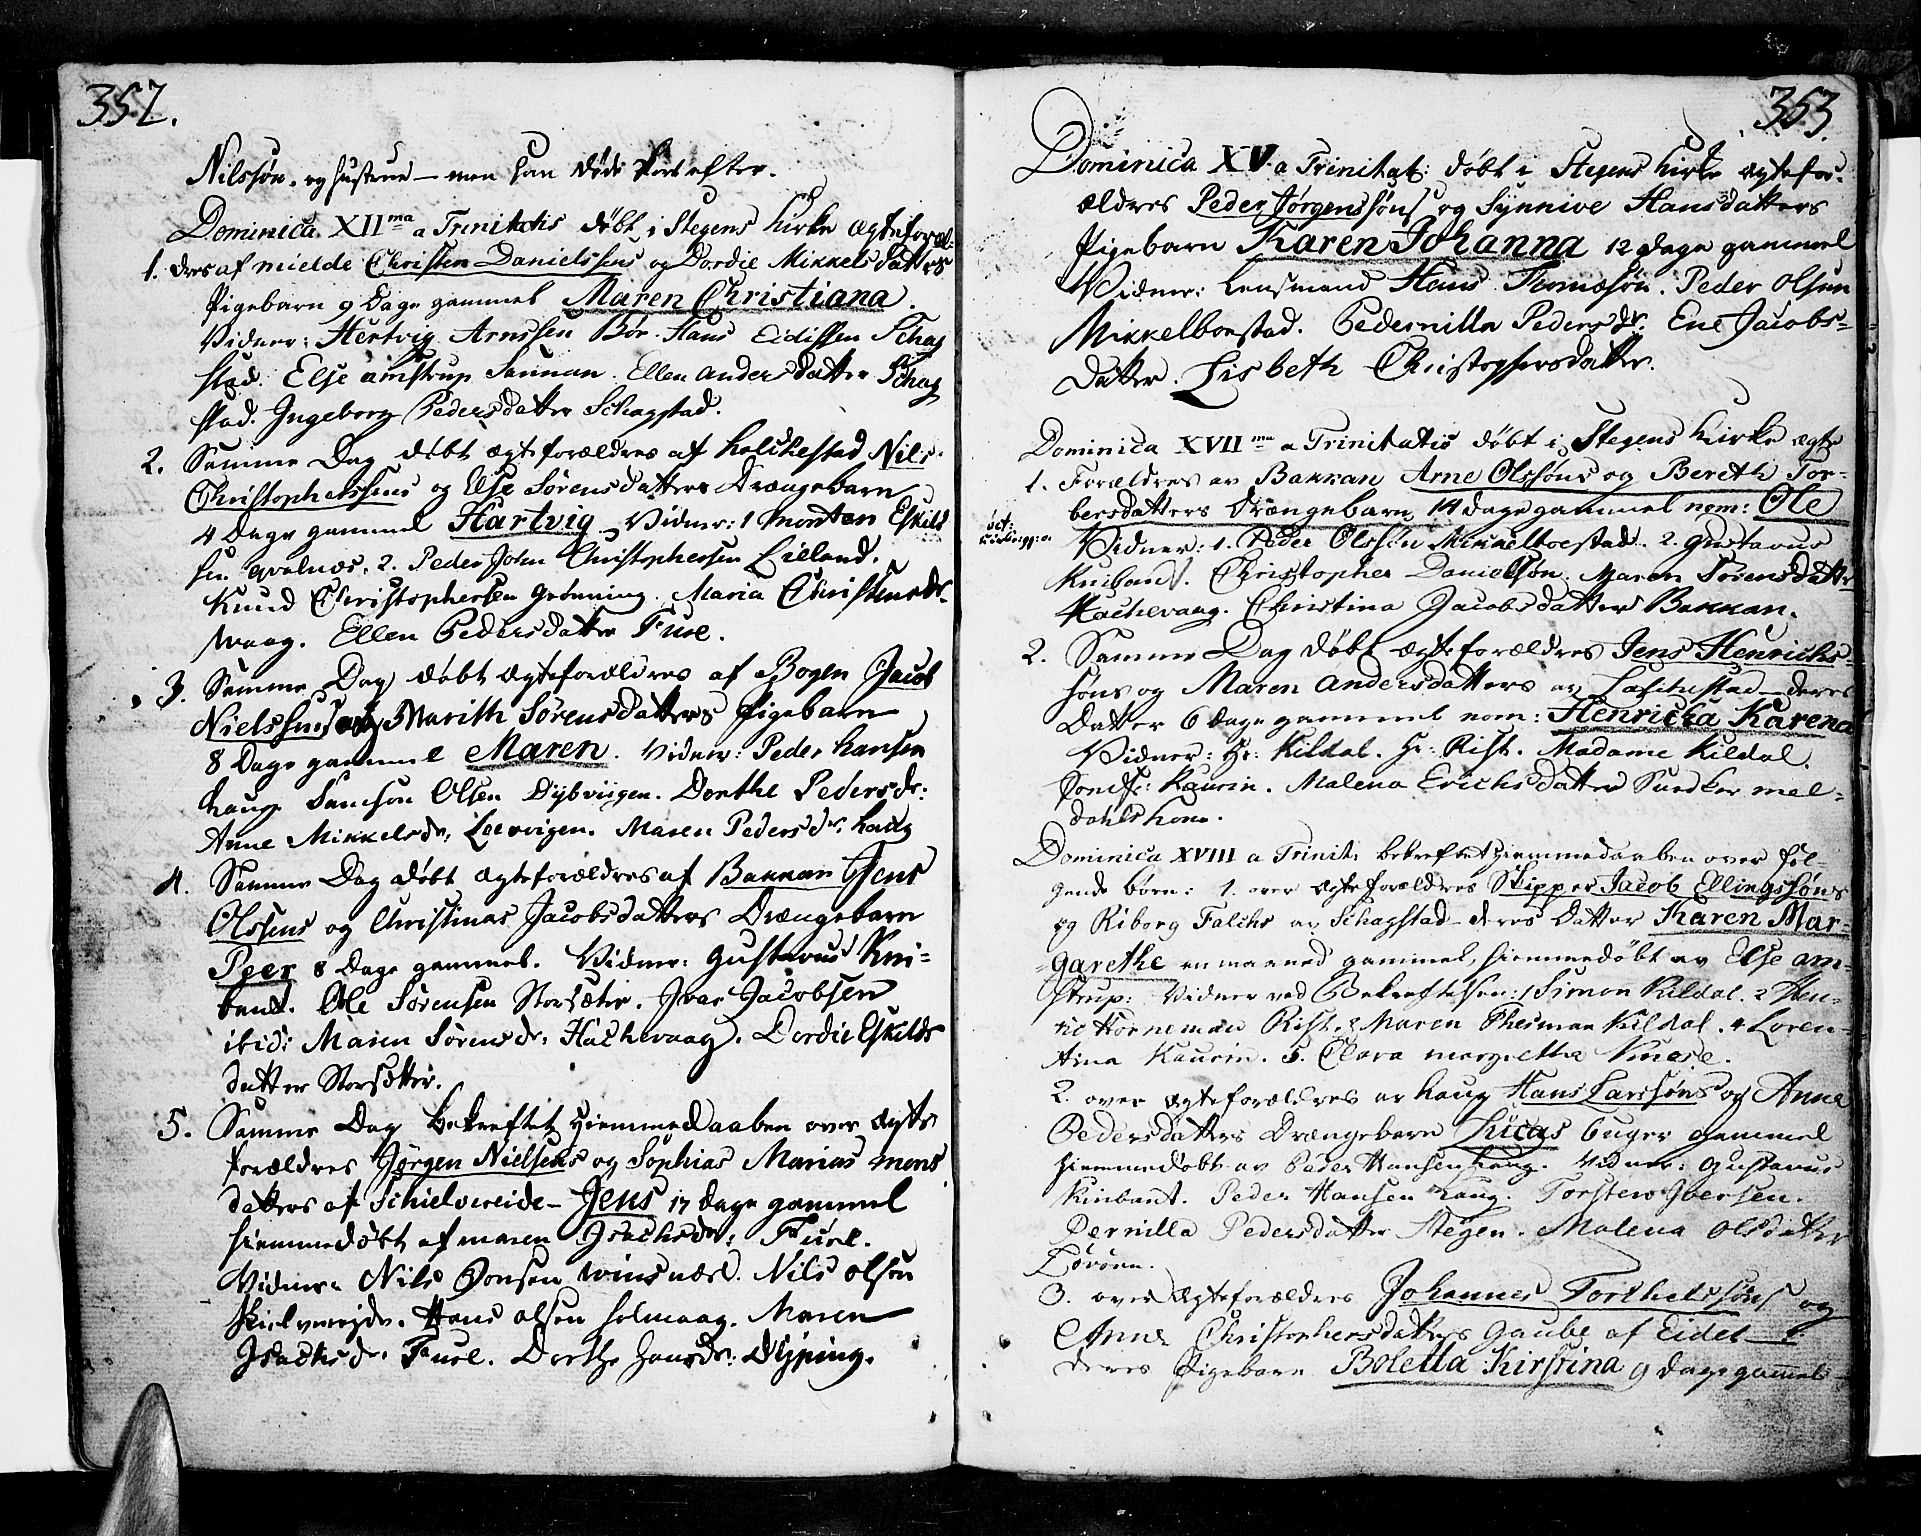 352.
Nilssøn. og hustrue – men han døde kort efter.
Dominica XII ma a Trinitatis døbt i Stegens Kirke Ægteforæl-
1. dres af mielde Christen Danielssens og Dordie Mikkelsdatters
Pigebarn 9 Dage gammel Maren Christiana.
Vidner: Hertvig Arnssen Bør. Hans Eidissen Schag
stad. Else amstrup Sannan. Ellen andersdatter Schag
stad. Ingeborg Pedersdatter Schagstad.
2. Samme Dag døbt ægteforældres af holchestad Nils
Christophersens og Else Sørensdatters Drængebarn
4 Dage gammel Hartvig Vidner: 1 monten Eskild
sen qvalnæs. 2. Peder John Christophersen Lieland.
Knud Christophersen grønning. Maria Christensdr.
waag. Ellen Pedersdatter Fuse.
3. Samme Dag døbt ægteforældres af Bogen Jacob
Nielssens og Marith Sørensdatters Pigebarn
8 Dage gammel Maren. Vidner: Peder hansen
haug Samson Olsen Dybviigen. Dorthe Pedersdr:
Anne Mikkelsdr. Leervigen. Maren Pedersdr. haug
4. Samme Dag døbt ægteforældres af Baknan Jens
Olssens og Christinas Jacobsdatters Drængebarn
Peer 8 Dage gammel. Vidner: gustavus Kni-
bant. Ole Sørensen Storsæter. Ivar Jacobsen
ibid: Maren Sørensdr. Hachevaag. Dordie Eskilds
datter Storsætter.
5. Samme Dag bekreftet Hiemmedaaben over ægte
forældres Jørgen Nielsens og Sophias Marias mons
datters af Schielvereide – Jens 17 dage gammel
hiemmedøbt af maren Isachsdr: Fusel.
Vidner. Nils Jonsen winsnæs. Nils olsen
skielvereide. Hans olsen holmaag. Maren
Isachsdr. Fusel. Dorthe hansdr: Dypping.
353.
Dominica XV a Trinitat: døbt i Stegens Kirke ægtefor-
ældres Peder Jørgenssøns og Synnive Hansdatters
Pigebarn Karen Johanna 12 dage gammel
Vidner: Lensmand Hans Thomæsøn. Peder Olsen
Mikkelboestad. Pedernilla Pedersdr. Ene Jacobs-
datter. Lisbeth Christophersdatter.
Dominica XVII ma a Trinitatis døbt i Stegens Kirke ægte
1. Forældres av Baknan Arne Olssøns og Bereth Tor-
bersdatters Drængebarn 14 dage gammel nom: Ole
Vidner: 1. Peder Olssøn Mikkelboestad. 2. gustavus
Knibant. Christopher Danielsøn. Maren Sørensdatter
Hachevaag. Christina Jacobsdatter Baknan.
2. Samme Dag døbt ægteforældres Jens Henrichs-
søns og Maren andersdatters av Laschestad – deres
Datter 6 dage gammel nom: Henricka Karena
Vidner: Hr: Kildal. Hr: Rist. Madame Kildal.
Kaurin. Malena Erichsdatter mel-
dahls kone.
Dominica XVIII a Trinit: bekreftet hiemmedaaben over føl-
gende børn: 1. over ægteforældres Skipper Jacob Ellingssøns
og Riborg Falchs av Schagstad – deres datter Karen Mar-
garethe en maaned gammel, hiemmedøbt av Else am-
strup: Vidner ved Bekreftelsen: 1 Simon Kildal. 2 Hen-
ric Horneman Rist. 3 Maren Thesman Kildal. 4 Loren-
tina Kaurin. 5. Clara margretha
2. over ægteforældres av haug Hans Larssøns og Anne
Pedersdatters Drængebarn Lucas 6 uger gammel
hiemmedøbt av Peder Hansen haug. Vidner: gustavus
Kinbant. Peder Hansen haug. Torsten Iversen.
Pernilla Pedersdatter Stegen. Malena Olsdatter
Løvøen.
3. over ægteforældres Johannes Torthelssøns og
Anne Christophersdatters gaube af Eidet
deres Pigebarn Boletta Kirstina 9 dage gammel